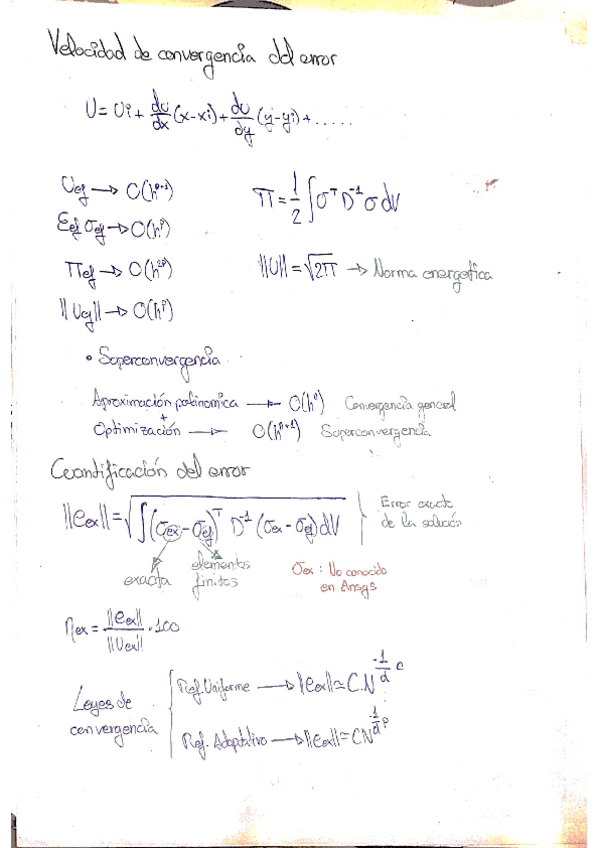 Velocidad de convergencia del error
U = Ui + du/dx (x-xi) + du/dy (y-yi) + .....
Uef → O(h^p+1)
π = 1/2 ∫σ^T D^-1 σ dV
Eef σef → O(h^p)
πef → O(h^2p)
||U|| = √2π → Norma energetica
||Uef|| → O(h^p)
• Superconvergencia
Aproximación polinomica → O(h^p) Convergencia general
+
Optimización → O(h^p+1) Superconvergencia
Cuantificación del error
||eex|| = √∫(σex - σef)^T D^-1 (σex - σef) dV
Error exacto
de la solución
exacta
elementos
finitos
σex : No conocido
en Ansys
ηex = ||eex||/||Uex|| · 100
Leyes de
convergencia
Ref. Uniforme → ||eex|| ≃ C.N^-1/d
Ref. Adaptativo → ||eex|| ≃ CN^-1/d p